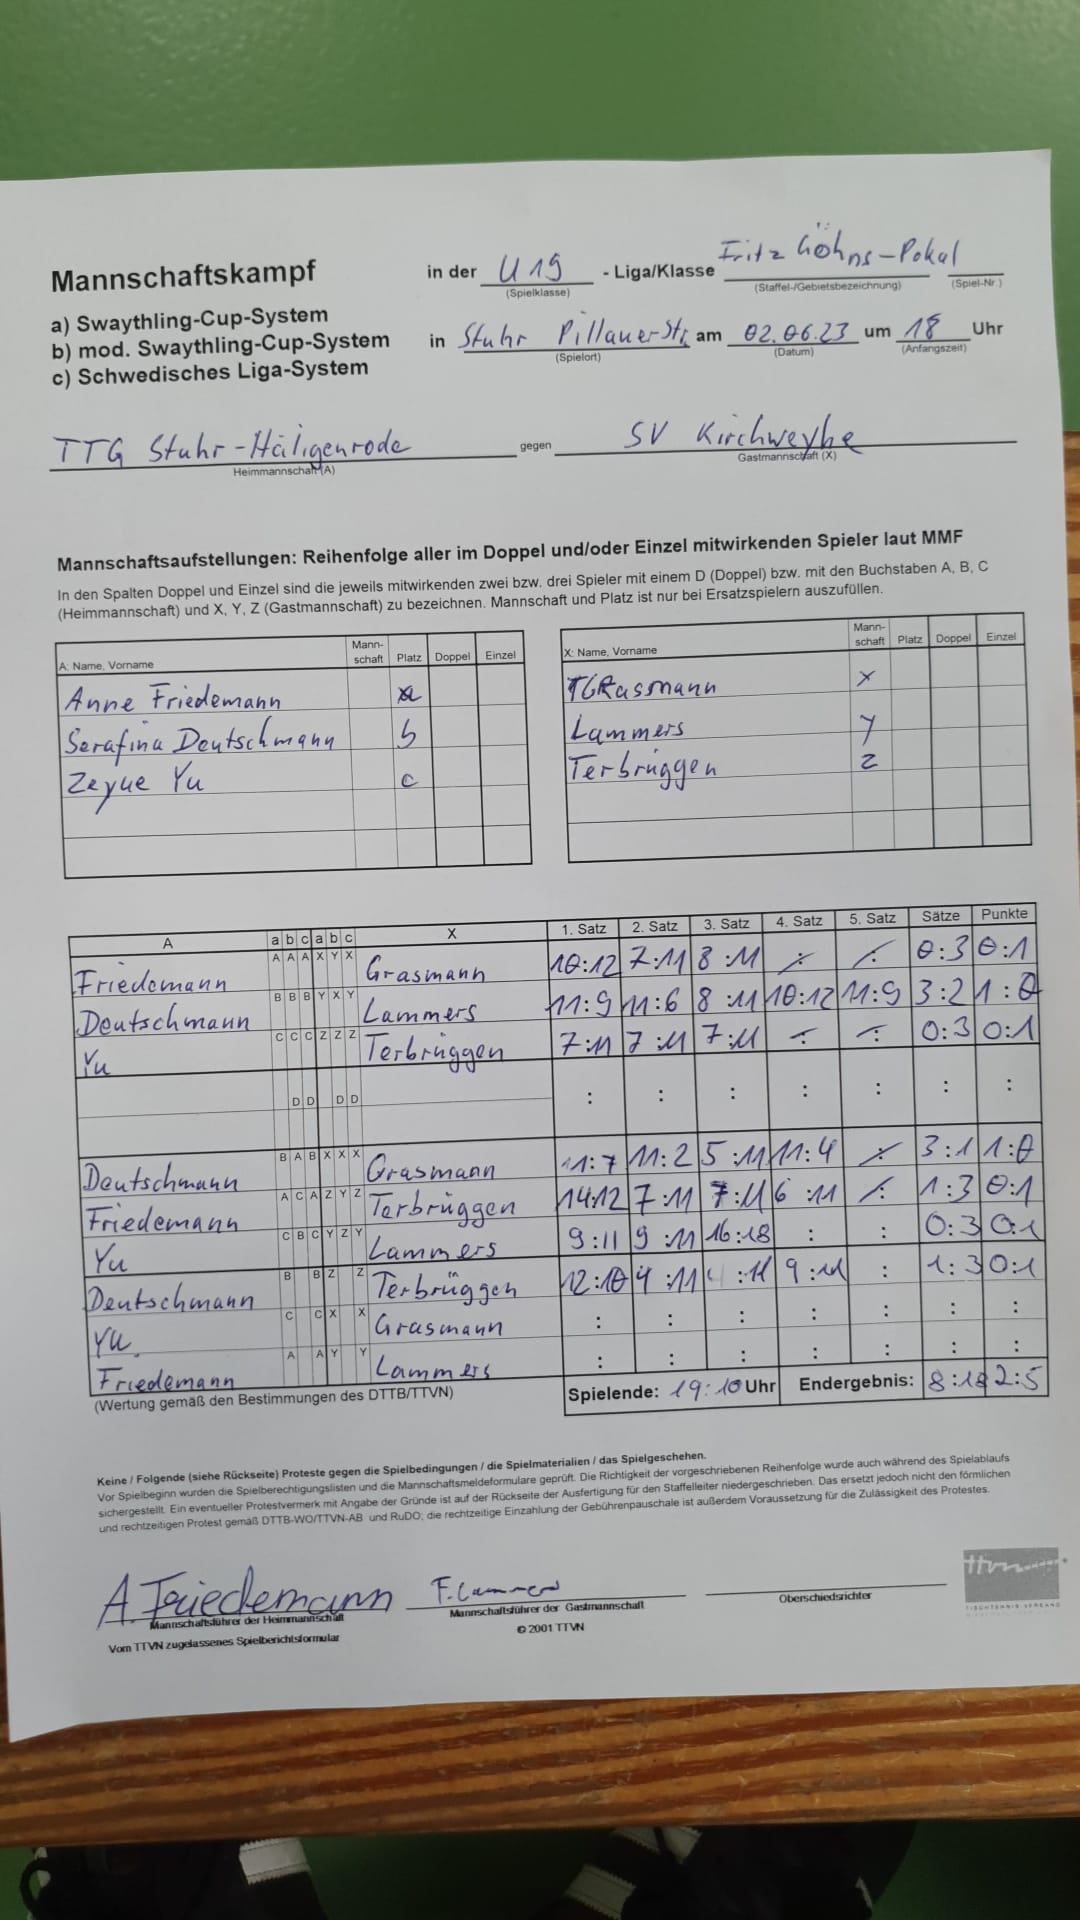 Mannschaftskampf in der U19 - Liga/Klasse Fritz Göhns-Pokal
(Spielklasse) (Staffel-/Gebietsbezeichnung) (Spiel-Nr.)
a) Swaythling-Cup-System
b) mod. Swaythling-Cup-System in Stuhr Pillauer Str. am 02.06.23 um 18 Uhr
(Spielort) (Datum) (Anfangszeit)
c) Schwedisches Liga-System
TTG Stuhr-Häligenrode gegen SV Kirchweyhe
Heimmannschaft (A) Gastmannschaft (X)
Mannschaftsaufstellungen: Reihenfolge aller im Doppel und/oder Einzel mitwirkenden Spieler laut MMF
In den Spalten Doppel und Einzel sind die jeweils mitwirkenden zwei bzw. drei Spieler mit einem D (Doppel) bzw. mit den Buchstaben A, B, C
(Heimmannschaft) und X, Y, Z (Gastmannschaft) zu bezeichnen. Mannschaft und Platz ist nur bei Ersatzspielern auszufüllen.
A: Name, Vorname Mann-schaft Platz Doppel Einzel X: Name, Vorname Mann-schaft Platz Doppel Einzel
Anne Friedemann a Grasmann x
Serafina Deutschmann b Lammers y
Zeyue Yu c Terbrüggen z
A a b c a b c X 1. Satz 2. Satz 3. Satz 4. Satz 5. Satz Sätze Punkte
Friedemann A A A X Y X Grasmann 10:12 7:11 8:11 : : 0:3 0:1
Deutschmann B B B Y X Y Lammers 11:9 11:6 8:11 10:12 11:9 3:2 1:0
Yu C C C Z Z Z Terbrüggen 7:11 7:11 7:11 : : 0:3 0:1
D D D D : : : : : : :
Deutschmann B A B X X X Grasmann 11:7 11:2 5:11 11:4 : 3:1 1:0
Friedemann A C A Z Y Z Terbrüggen 14:12 7:11 7:11 6:11 : 1:3 0:1
Yu C B C Y Z Y Lammers 9:11 9:11 16:18 : : 0:3 0:1
Deutschmann B B Z Z Terbrüggen 12:10 4:11 :11 9:11 : 1:3 0:1
Yu C C X X Grasmann : : : : : : :
Friedemann A A Y Y Lammers : : : : : : :
(Wertung gemäß den Bestimmungen des DTTB/TTVN) Spielende: 19:10 Uhr Endergebnis: 8:18 2:5
Keine / Folgende (siehe Rückseite) Proteste gegen die Spielbedingungen / die Spielmaterialien / das Spielgeschehen.
Vor Spielbeginn wurden die Spielberechtigungslisten und die Mannschaftsmeldeformulare geprüft. Die Richtigkeit der vorgeschriebenen Reihenfolge wurde auch während des Spielablaufs
sichergestellt. Ein eventueller Protestvermerk mit Angabe der Gründe ist auf der Rückseite der Ausfertigung für den Staffelleiter niedergeschrieben. Das ersetzt jedoch nicht den förmlichen
und rechtzeitigen Protest gemäß DTTB-WO/TTVN-AB und RuDO; die rechtzeitige Einzahlung der Gebührenpauschale ist außerdem Voraussetzung für die Zulässigkeit des Protestes.
A. Friedemann F. Lammers
Mannschaftsführer der Heimmannschaft Mannschaftsführer der Gastmannschaft Oberschiedsrichter
Vom TTVN zugelassenes Spielberichtsformular © 2001 TTVN
ttvn
TISCHTENNIS-VERBAND